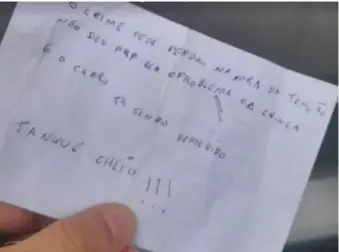 O CRIME PEDE PERDÃO NA HORA DA TENSÃO
NÃO DEU PRA VER O PROBLEMA DA CRIANÇA
E O CARRO
TA SENDO DEVOLVIDO
TANQUE CHEIO!!!